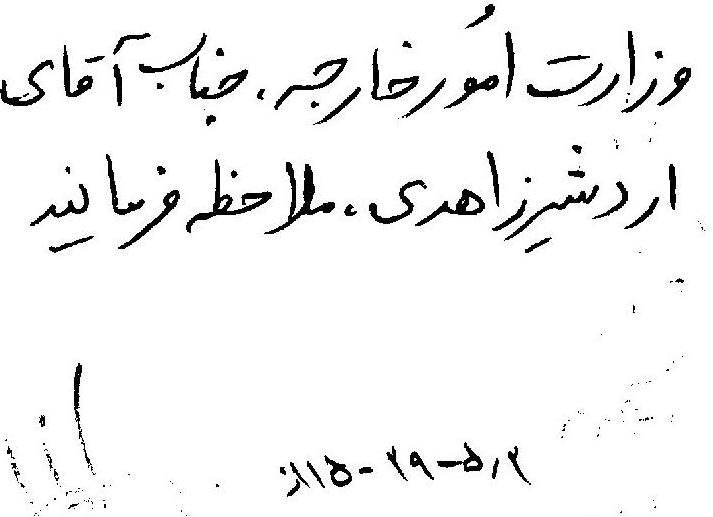 وزارت امُور خارجه، جناب آقای
اردشیر زاهدی، ملاحظه فرمایند